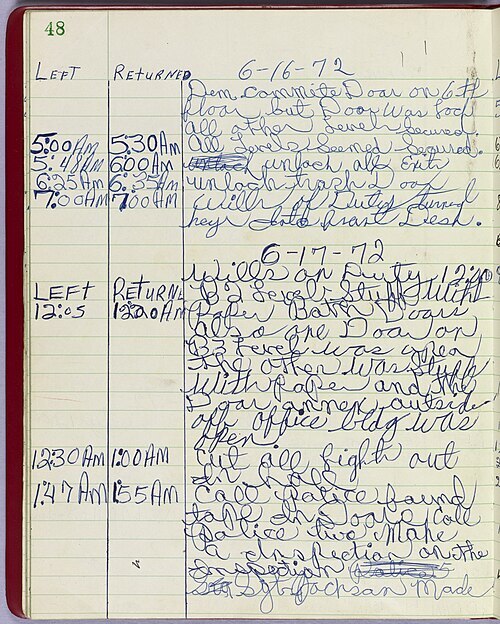 48
LEFT RETURNED 6-16-72
Dem. Committe Door on 6th
floor but Door was
all other level secured.
5:00 AM 5:30 AM all levels seemed secured.
5:48 AM 6:00 AM unlock all Exit
6:25 AM 6:35 AM unlock trash Door
7:00 AM 7:00 AM Wills of Duty turned
keys into Desk.
6-17-72
Wills on Duty 12:00
LEFT B2 level Stuff with
12:05 12:20 AM Paper Both Doors
also one Door on
B3 level was open
the other was Stuff
with paper and the
Door annex outside
off office bldg was
open
12:30 AM 1:00 AM Cut all light out
in hall
1:47 AM 1:55 AM Call Police found
tape in Doors Call
Police two make
a inspection on the
inspection
Sgt. Jackson Made